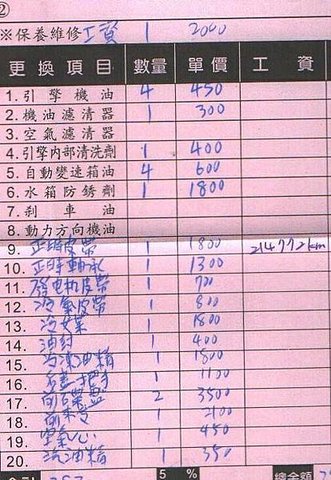 ②
※保養維修 工資 1 2000
更換項目 數量 單價 工資
1. 引擎機油 4 450
2. 機油濾清器 1 300
3. 空氣濾清器
4. 引擎內部清洗劑 1 400
5. 自動變速箱油 4 600
6. 水箱防銹劑 1 1800
7. 剎車油
8. 動力方向機油
9. 正時皮帶 1 1800 214772km
10. 正時軸承 1 1300
11. 發电机皮帶 1 700
12. 冷氣皮帶 1 800
13. 冷媒 1 1800
14. 油封 1 400
15. 冷凍油精 1 1800
16. 1 1100
17. 2 3500
18. 1 2100
19. 空氣心 1 450
20. 汽油精 1 350
5 %
總金額